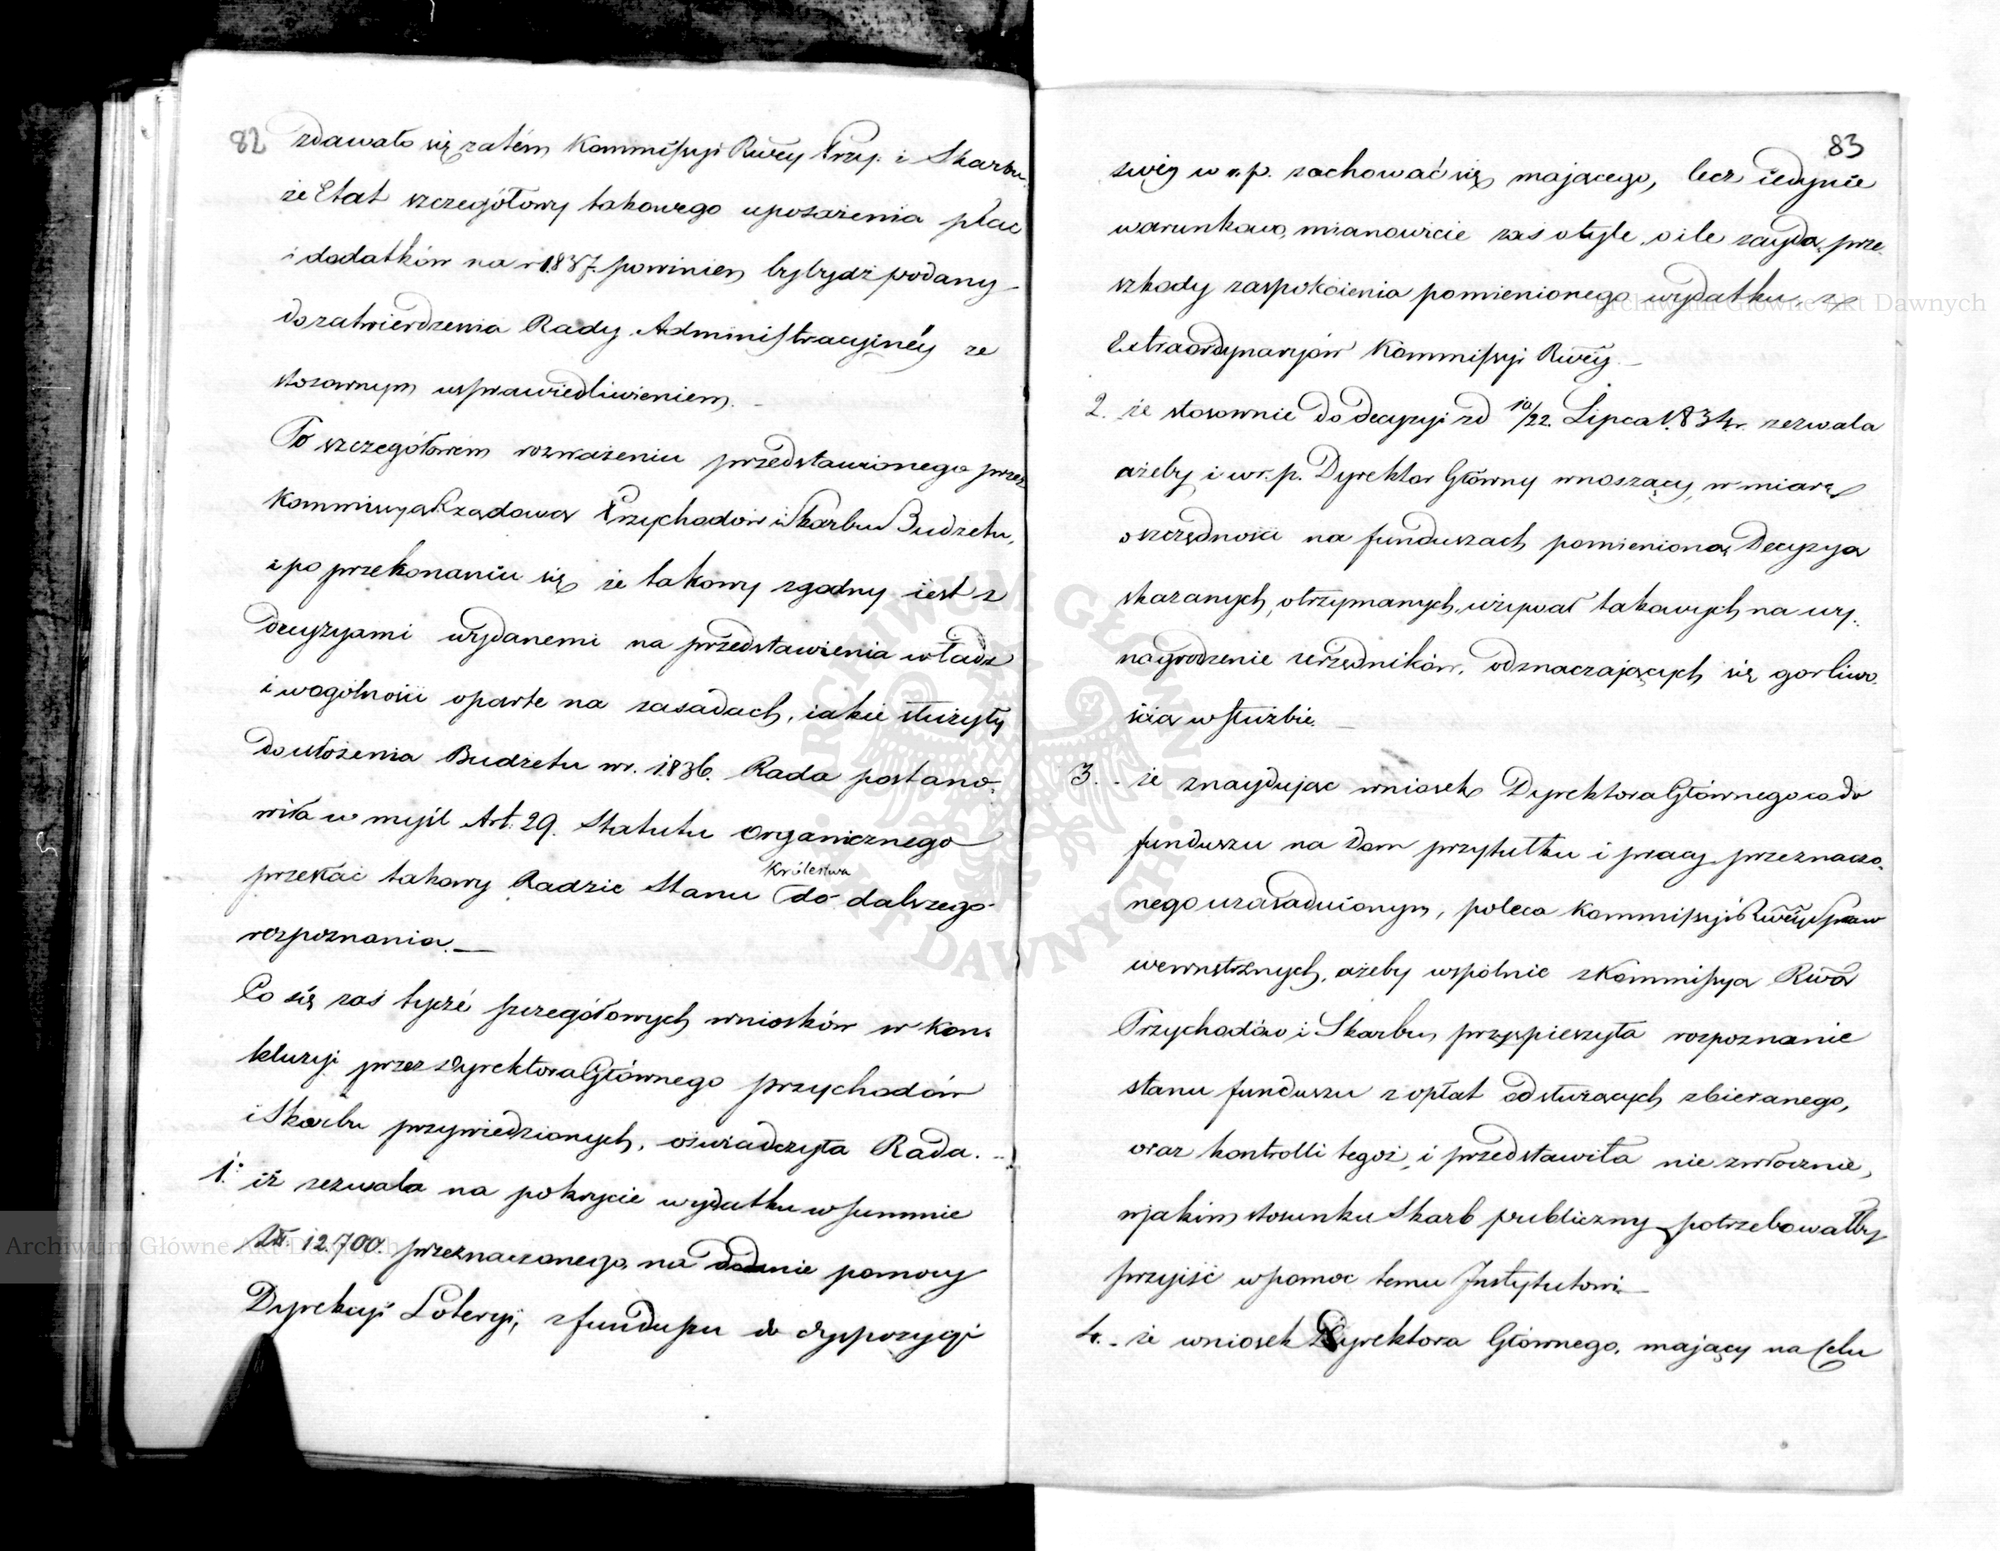 82
zdawało się zatém Kommissyi Rwéy Przy: i Skarbu,
że Etat szczegółowy takowego uposażenia płac
i dodatków na r. 1837. powinien by bydź podany
do zatwierdzenia Rady Administracyjnéy ze
stosownym usprawiedliwieniem. –
Po szczegółowem rozważeniu przedstawionego przez
Kommissyą Rządową Przychodów i Skarbu Budżetu,
i po przekonaniu się że takowy zgodny iest z
decyzyami wydanemi na przedstawienia władz
i w ogólności oparte na zasadach, iakie służyły
do ułożenia Budżetu nr. 1836. Rada postano-
wiła w myśl Art: 29. Statutu Organicznego
Królestwa
przesłać takowy Radzie Stanu do dalszego
rozpoznania. —
Co się zaś tycze szczegółowych wniosków w Kon-
kluzyi przez Dyrektora Głównego Przychodów
i Skarbu przywiedzionych, oświadczyła Rada. –
1: iż zezwala na pokrycie wydatku w summie
Złł: 12,700. przeznaczonego na dodanie pomocy
Dyrekcyi Loteryi, z funduszu do dyspozycyi
83
swéy w r. p. zachować się mającego, lecz iedynie
warunkowo, mianowicie zaś o tyle, o ile zayda prze-
szkody zaspokoienia pomienionego wydatku z
Extraordynaryów Kommissyi Rwéy. –
2. że stosownie do decyzyi zd 10/22. Lipca 1834 r. zezwala
ażeby i w r. p. Dyrektor Główny wnoszący, w miarę
oszczędności na funduszach pomienioną Decyzyą
skazanych, otrzymanych, używał takowych na wy-
nagrodzenie urzędników, odznaczających się gorliwo-
ścią w służbie. —
3. – że znayduiąc wniosek Dyrektora Głównego co do
funduszu na Dom przytułku i pracy przeznaczo-
nego uzasadnionym, poleca Kommissyi Rwéy Spraw
wewnętrznych, ażeby wspólnie z Kommissyą Rwą
Przychodów i Skarbu, przyspieszyła rozpoznanie
stanu funduszu z opłat od służących zbieranego,
oraz kontrolli tegoż, i przedstawiła niezwłocznie,
w jakim stosunku Skarb publiczny potrzebowałby
przyiść w pomoc temu Instytutowi. –
4. – że wniosek Dyrektora Głównego, mający na Celu
Archiwum Główne Akt Dawnych
Archiwum Główne Akt Dawnych
ARCHIWUM GŁÓWNE AKT DAWNYCH